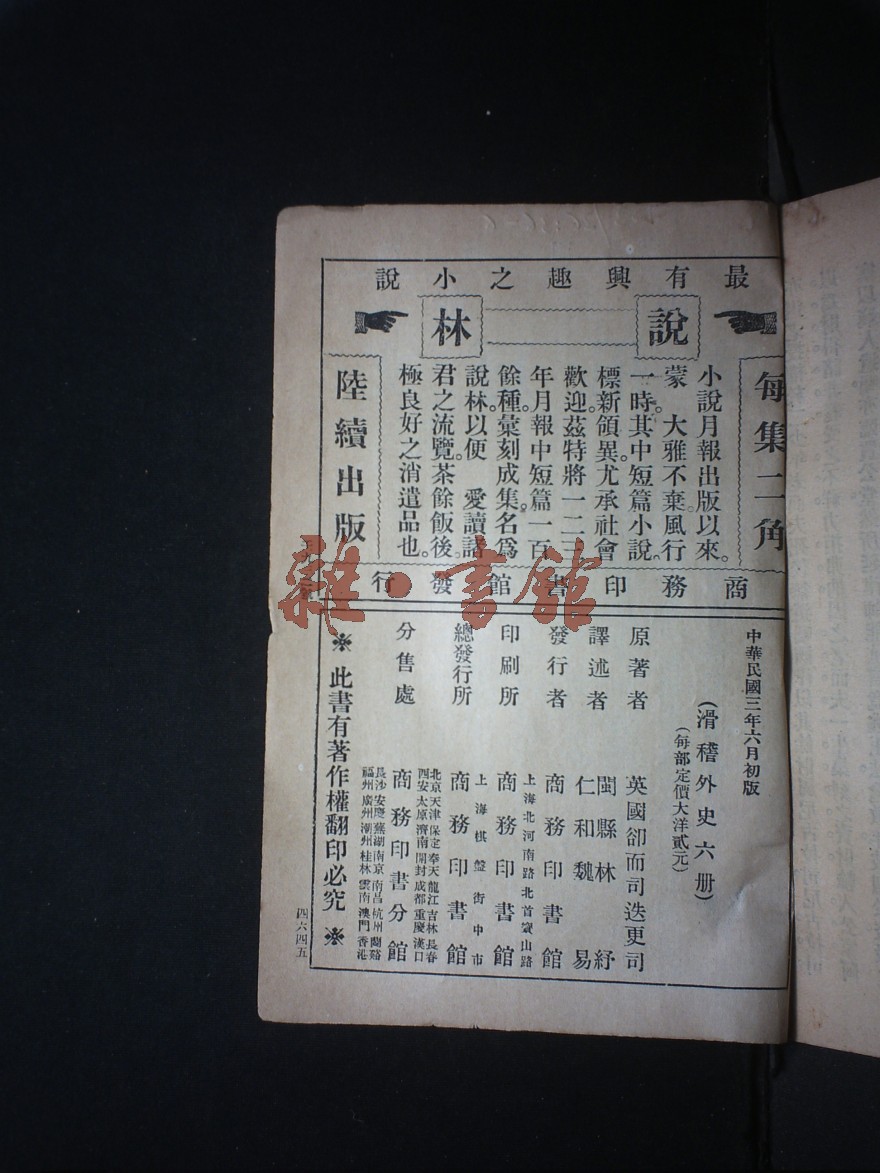 最有興趣之小說
說林
每集二角
小說月報出版以來。
蒙　大雅不棄。風行
一時。其中短篇小說。
標新領異。尤承社會
歡迎。茲特將一二三
年月報中短篇一百
餘種。彙刻成集。名爲
說林。以便　愛讀諸
君之流覽。茶餘飯後。
極良好之消遣品也。
陸續出版
商務印書館發行
雜·書館
中華民國三年六月初版
(滑稽外史六册)
(每部定價大洋貳元)
原著者　英國卻而司迭更司
譯述者　閩縣林紓
仁和魏易
發行者　商務印書館
上海北河南路北首寶山路
印刷所　商務印書館
上海棋盤街中市
總發行所　商務印書館
北京天津保定奉天龍江吉林長春
西安太原濟南開封成都重慶漢口
分售處　商務印書分館
長沙安慶蕪湖南京南昌杭州蘭谿
福州廣州潮州桂林雲南澳門香港
※此書有著作權翻印必究※
四六四五